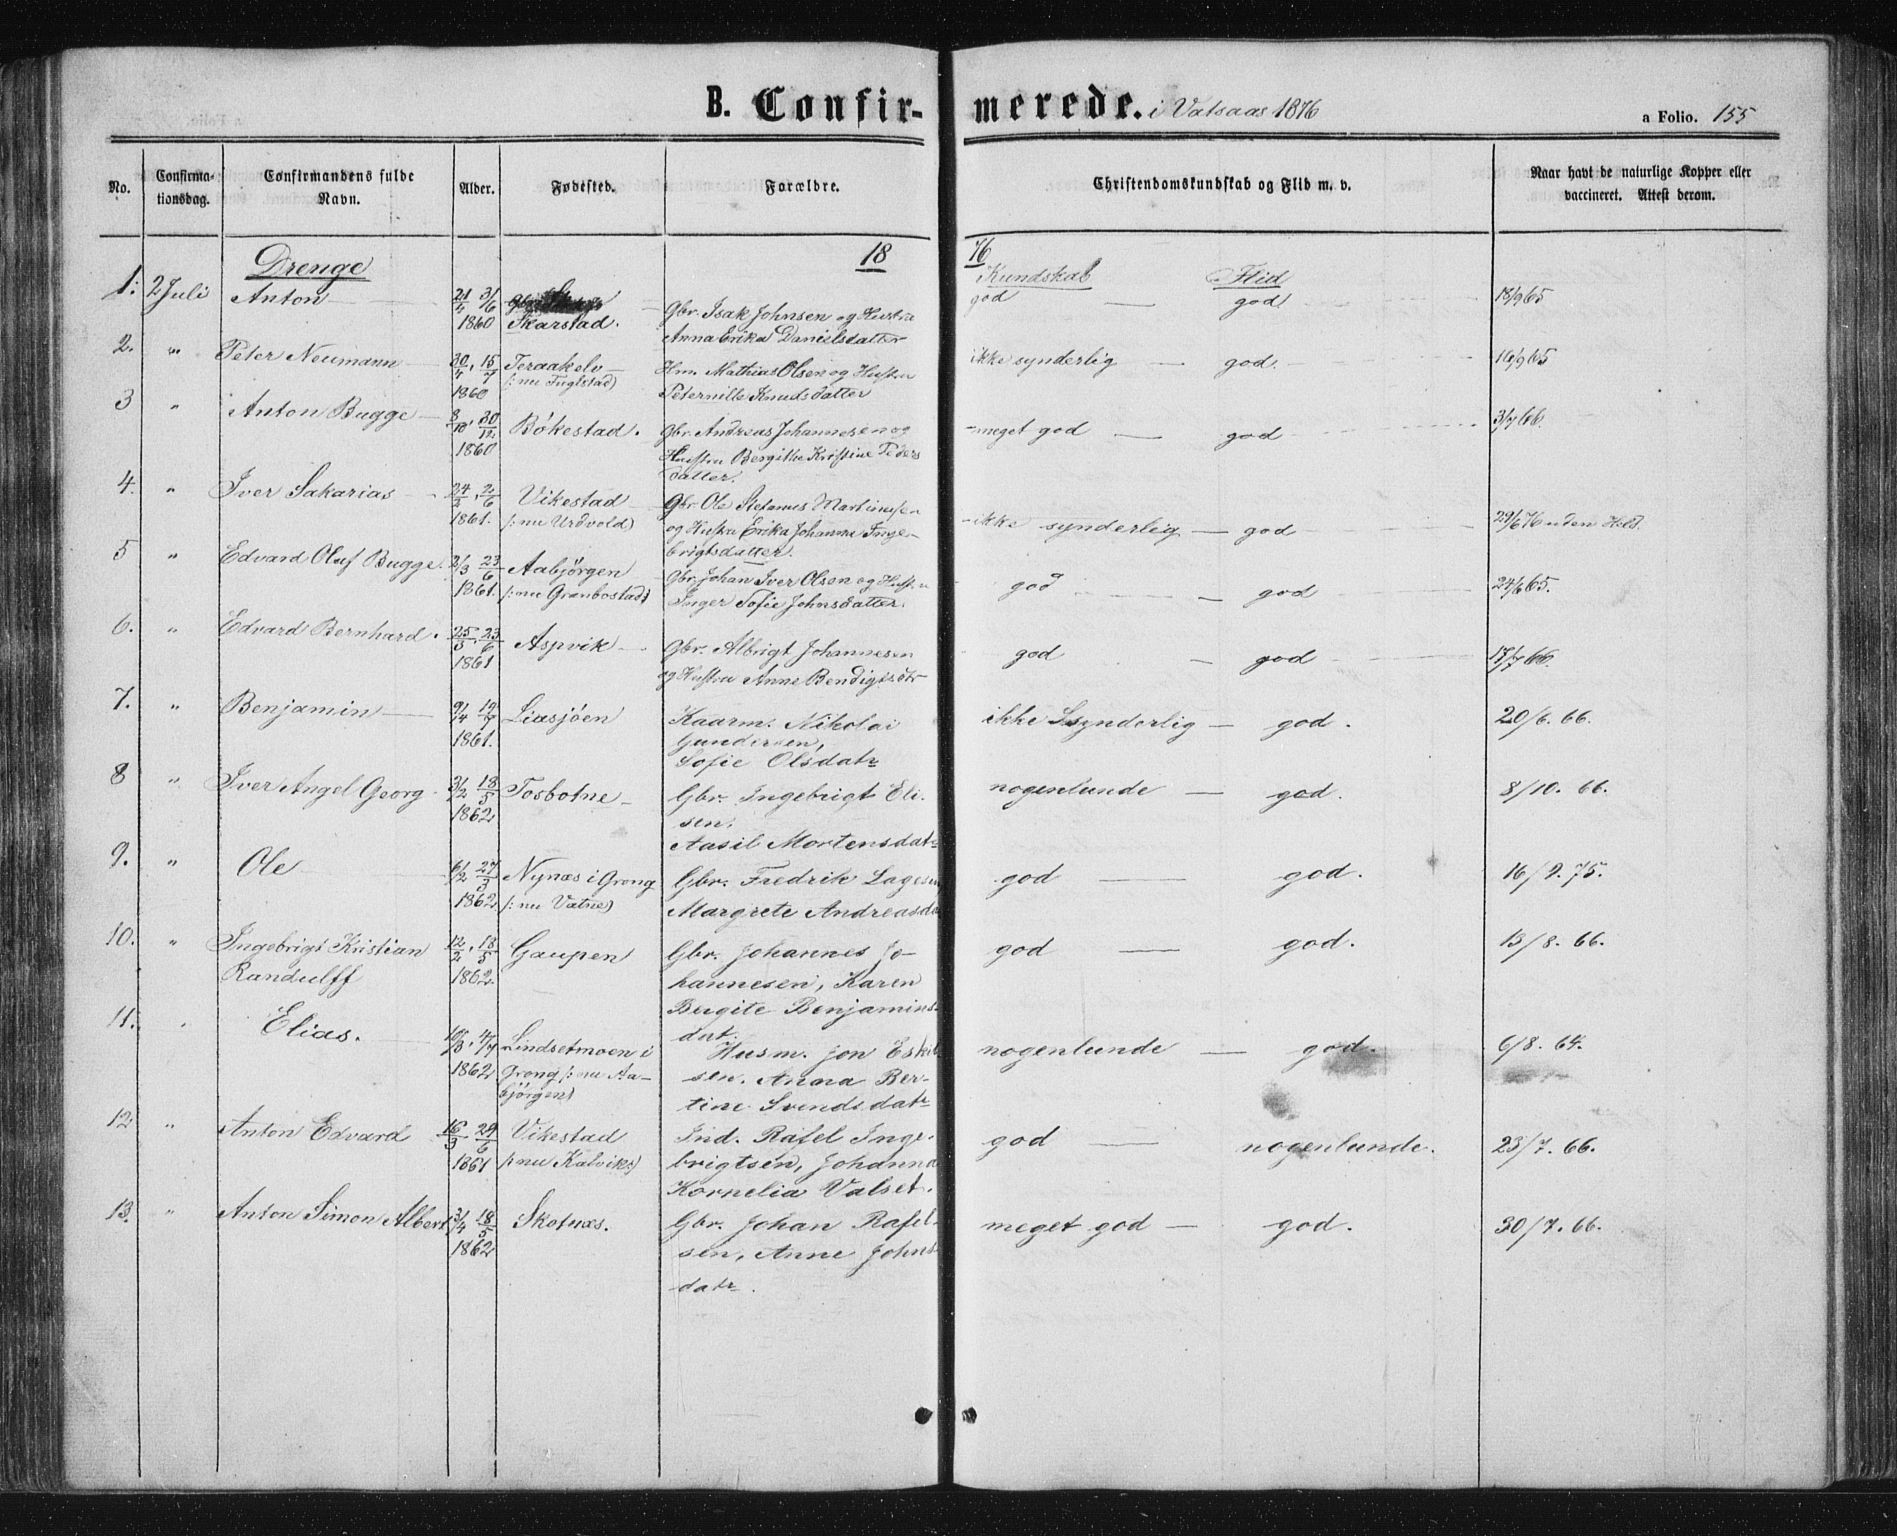 B. Confirmerede. i Vatsaas 1876
a Folio. 155
No. Confirmationsdag. Confirmandens fulde Navn. Alder. Fødested. Forældre. Christendomskundskab og Flid m. v. Naar havt de naturlige Kopper eller vaccineret. Attest derom.
Drenge 18 76
Kundskab Flid
1. 2 Juli Anton 21/4 3/6 god god 18/9 65
1860 Skarstad. Gbr. Isak Johnsen og Hustru
Anna Erika Danielsdatter
2. " Peter Neumann 30/4, 15/7 Teraakelv Hm. Mathias Olsen og Hustru ikke synderlig god. 16/9 65
1860 /: nu Fuglstad) Peternille Knudsdatter
3 " Anton Bugge 8/10, 30/12 Bókestad. Gbr. Andreas Johannesen og meget god god 3/7 66.
1860 Hustru Bergithe Kristine Peders
datter.
4. " Iver Sakarias 24/2, 2/6 Vikestad Gbr. Ole Stefanus Martinusen ikke synderlig god 29/6 76 uden Held.
1861. /: nu Urdvold) og Hustru Erika Johanna Inge-
brigtsdatter.
5 " Edvard Oluf Bugge. 2/3 23/6 Aabjörgen Gbr. Johan Iver Olsen og Hustru god god 24/6 65.
1861. /: nu Grønbostad) Inger Sofie Johnsdatter.
6. " Edvard Bernhard. 25/3, 23/6 Aspvik Gbr. Albrigt Johannesen god god 17/7 66.
1861 og Hustru Anne Bendigtsdtr
7. " Benjamin 9/4 Liasjöen Kaarm. Nikolai ikke synderlig god. 20/6. 66.
1861. Gundersen,
Sofie Olsdatr
8 " Iver Angel Georg 3/2 18/5 Tosbotne Gbr. Ingebrigt Eli- nogenlunde god. 8/10. 66.
1862 sen.
Aasil Mortensdatr
9. " Ole 6/2 27/3 Nynæs i Grong Gbr. Fredrik Lagesen god god. 16/9. 75.
1862 /: nu Vatne) Margrete Andreasda
10. " Ingebrigt Kristian 12/2, 18/5 Gaupen Gbr. Johannes Jo- god god. 13/8. 66.
Randulff 1862 hannesen, Karen
Bergite Benjamins-
dat.
11. " Elias. 10/3, 4/7 Lindsetmoen i Husm. Jon Eskil- nogenlunde god. 6/8. 64.
1862 Grong /: nu Aa- sen. Anna Ber-
björgen) tine Svendsdatr
12 " Anton Edvard 16/3 24/6 Vikestad Ind. Rafel Inge- god nogenlunde. 23/7. 66.
1861 /: nu Kalvik:) brigtsen, Johanna
Kornelia Valset.
13. " Anton Simon Albert 3/4 18/5 Skotnæs. Gbr. Johan Rafel- meget god god. 30/7. 66.
1862 sen, Anne Johns-
datr.